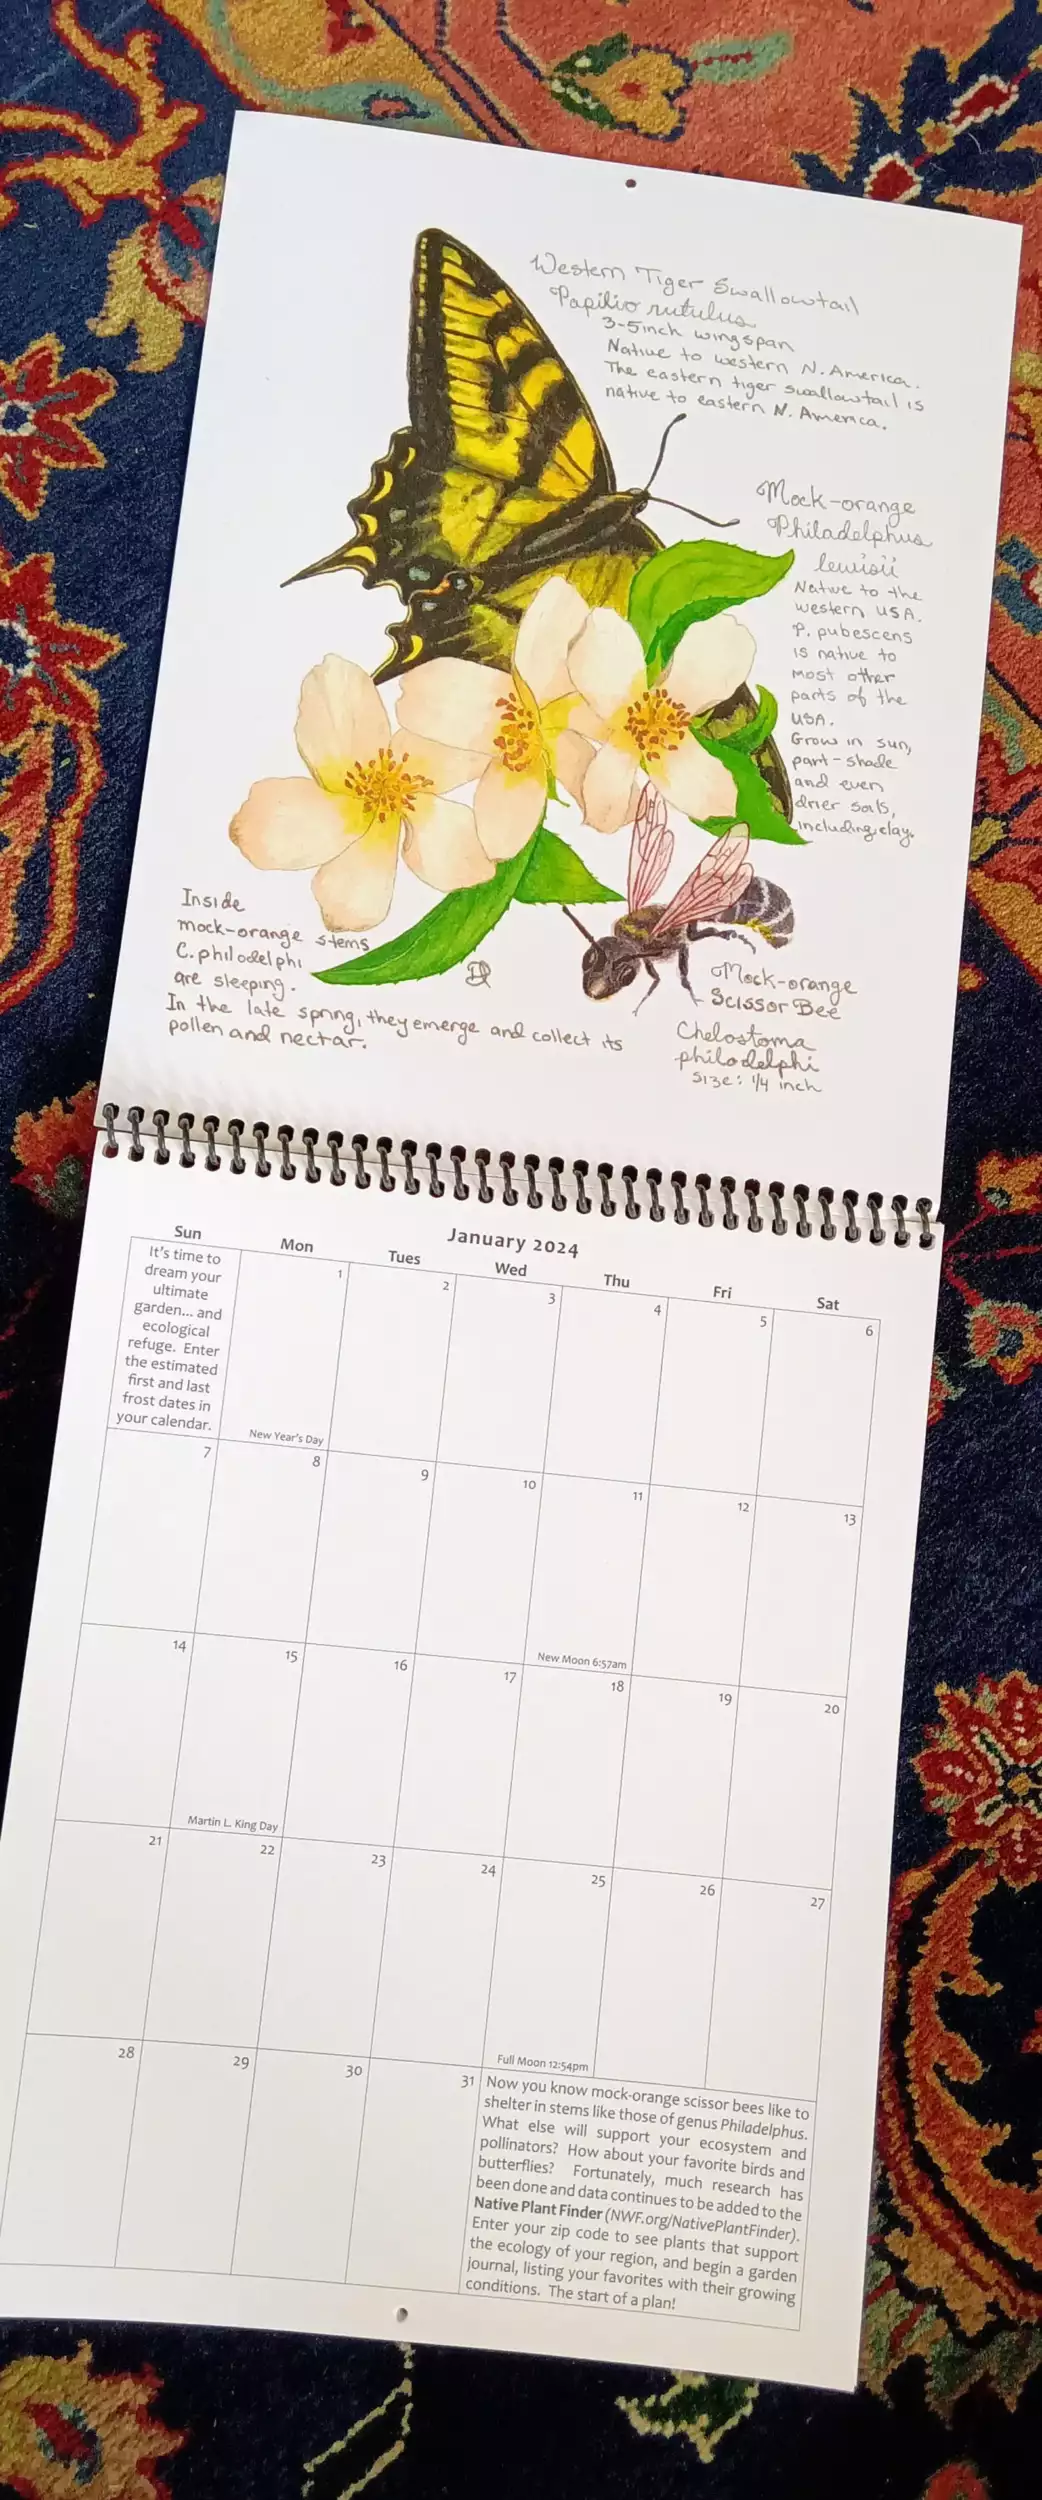 Western Tiger Swallowtail
Papilio rutulus
3-5 inch wingspan
Native to western N. America.
The eastern tiger swallowtail is
native to eastern N. America.
Mock-orange
Philadelphus
lewisii
Native to the
western USA.
P. pubescens
is native to
most other
parts of the
USA.
Grow in sun,
part-shade
and even
drier soils,
including clay.
Inside
mock-orange stems
C. philadelphi
are sleeping.
In the late spring, they emerge and collect its
pollen and nectar.
Mock-orange
Scissor Bee
Chelostoma
philadelphi
size: 1/4 inch
January 2024
Sun Mon Tues Wed Thu Fri Sat
It's time to
dream your
ultimate
garden... and
ecological
refuge. Enter
the estimated
first and last
frost dates in
your calendar.
1 2 3 4 5 6
New Year's Day
7 8 9 10 11 12 13
New Moon 6:57am
14 15 16 17 18 19 20
Martin L. King Day
21 22 23 24 25 26 27
Full Moon 12:54pm
28 29 30 31
Now you know mock-orange scissor bees like to
shelter in stems like those of genus Philadelphus.
What else will support your ecosystem and
pollinators? How about your favorite birds and
butterflies? Fortunately, much research has
been done and data continues to be added to the
Native Plant Finder (NWF.org/NativePlantFinder).
Enter your zip code to see plants that support
the ecology of your region, and begin a garden
journal, listing your favorites with their growing
conditions. The start of a plan!